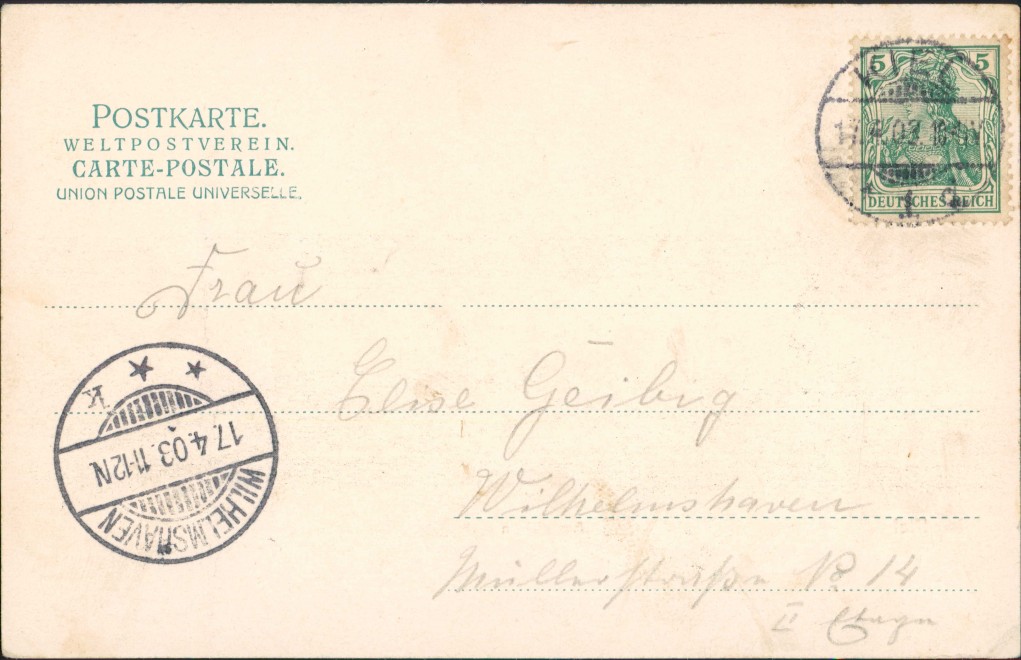 POSTKARTE.
WELTPOSTVEREIN.
CARTE-POSTALE.
UNION POSTALE UNIVERSELLE.
5 5
KIEL
17.4.03.
DEUTSCHES REICH
Frau
Elise Geibig
Wilhelmshaven
Müllerstraße No 14
II Etage
K
17.4.03. 11-12N
WILHELMSHAVEN